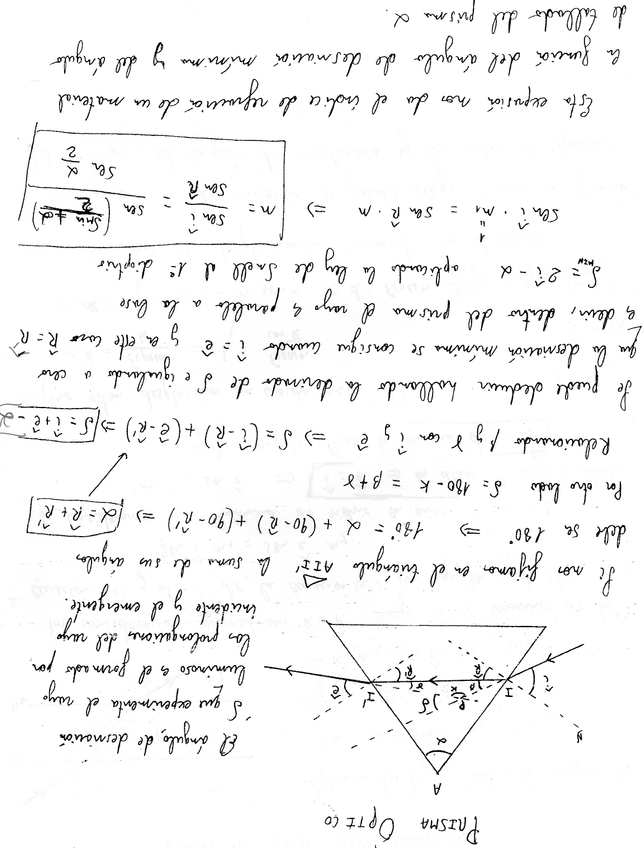 PRISMA ÓPTICO
A
α
N
î
I
R̂
β
k
δ
γ
R̂'
I'
ê
El ángulo de desviación
δ que experimenta el rayo
luminoso es el formado por
las prolongaciones del rayo
incidente y el emergente.
Si nos fijamos en el triángulo AII' la suma de sus ángulos
debe ser 180° ⇒ 180° = α + (90-R̂) + (90-R̂') ⇒ α = R̂ + R̂'
Por otro lado δ = 180 - k = β + γ
Relacionando β y γ con î y ê ⇒ δ = (î-R̂) + (ê-R̂') ⇒ δ = î + ê - α
Se puede deducir hallando la derivada de δ e igualando a cero
que la desviación mínima se consigue cuando î = ê y en este caso R̂ = R̂'
es decir, dentro del prisma el rayo es paralelo a la base
δmin = 2î - α aplicando la ley de Snell al 1er dioptrio
sen î · n₁ = sen R̂ · n ⇒ n = sen î / sen R̂ = sen (δmin + α / 2) / sen α/2
1
Esta expresión nos da el índice de refracción de un material
en función del ángulo de desviación mínima y del ángulo
de tallado del prisma α.